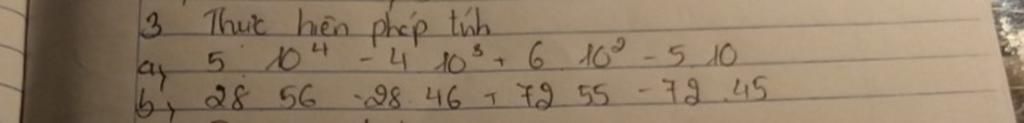 3 Thực hiện phép tính
a, 5 10⁴ - 4 10³ + 6 10² - 5 10
b, 28 56 - 28 46 + 72 55 - 72 .45